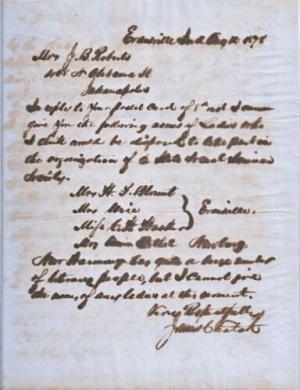 Evansville Ind Aug 10 1878
Mrs J. B. Roberts
N. Alabama St
Indianapolis
In reply to your postal card of 8th inst I cannot
give you the following names of Ladies who
I think would be disposed to take part in
the organization of a State
Society.
Mrs H. F. Blount
Mrs Wise
Miss C. H.
Evansville.
Mrs Newburg.
New Harmony has quite a large number
of literary people, but I cannot give
the names of any ladies at this moment.
Very Respectfully
James